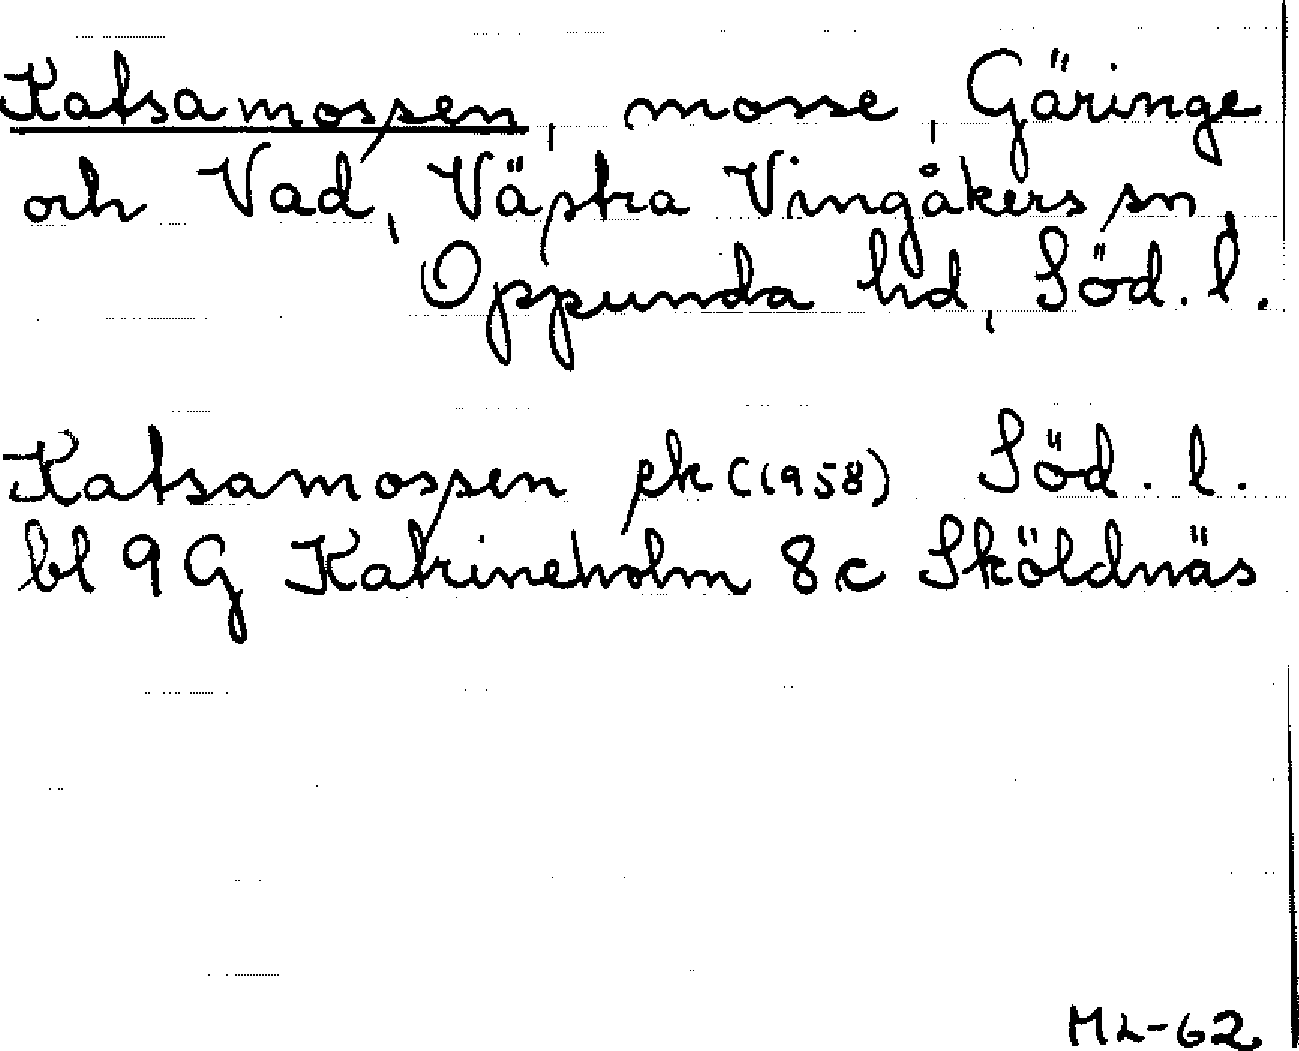 Katsamossen, mosse, Gäringe
och Vad, Västra Vingåkers sn,
Oppunda hd, Söd. l.
Katsamossen ek (1958) Söd. l.
bl 9 G Katrineholm 8 c Sköldnäs
ML-62